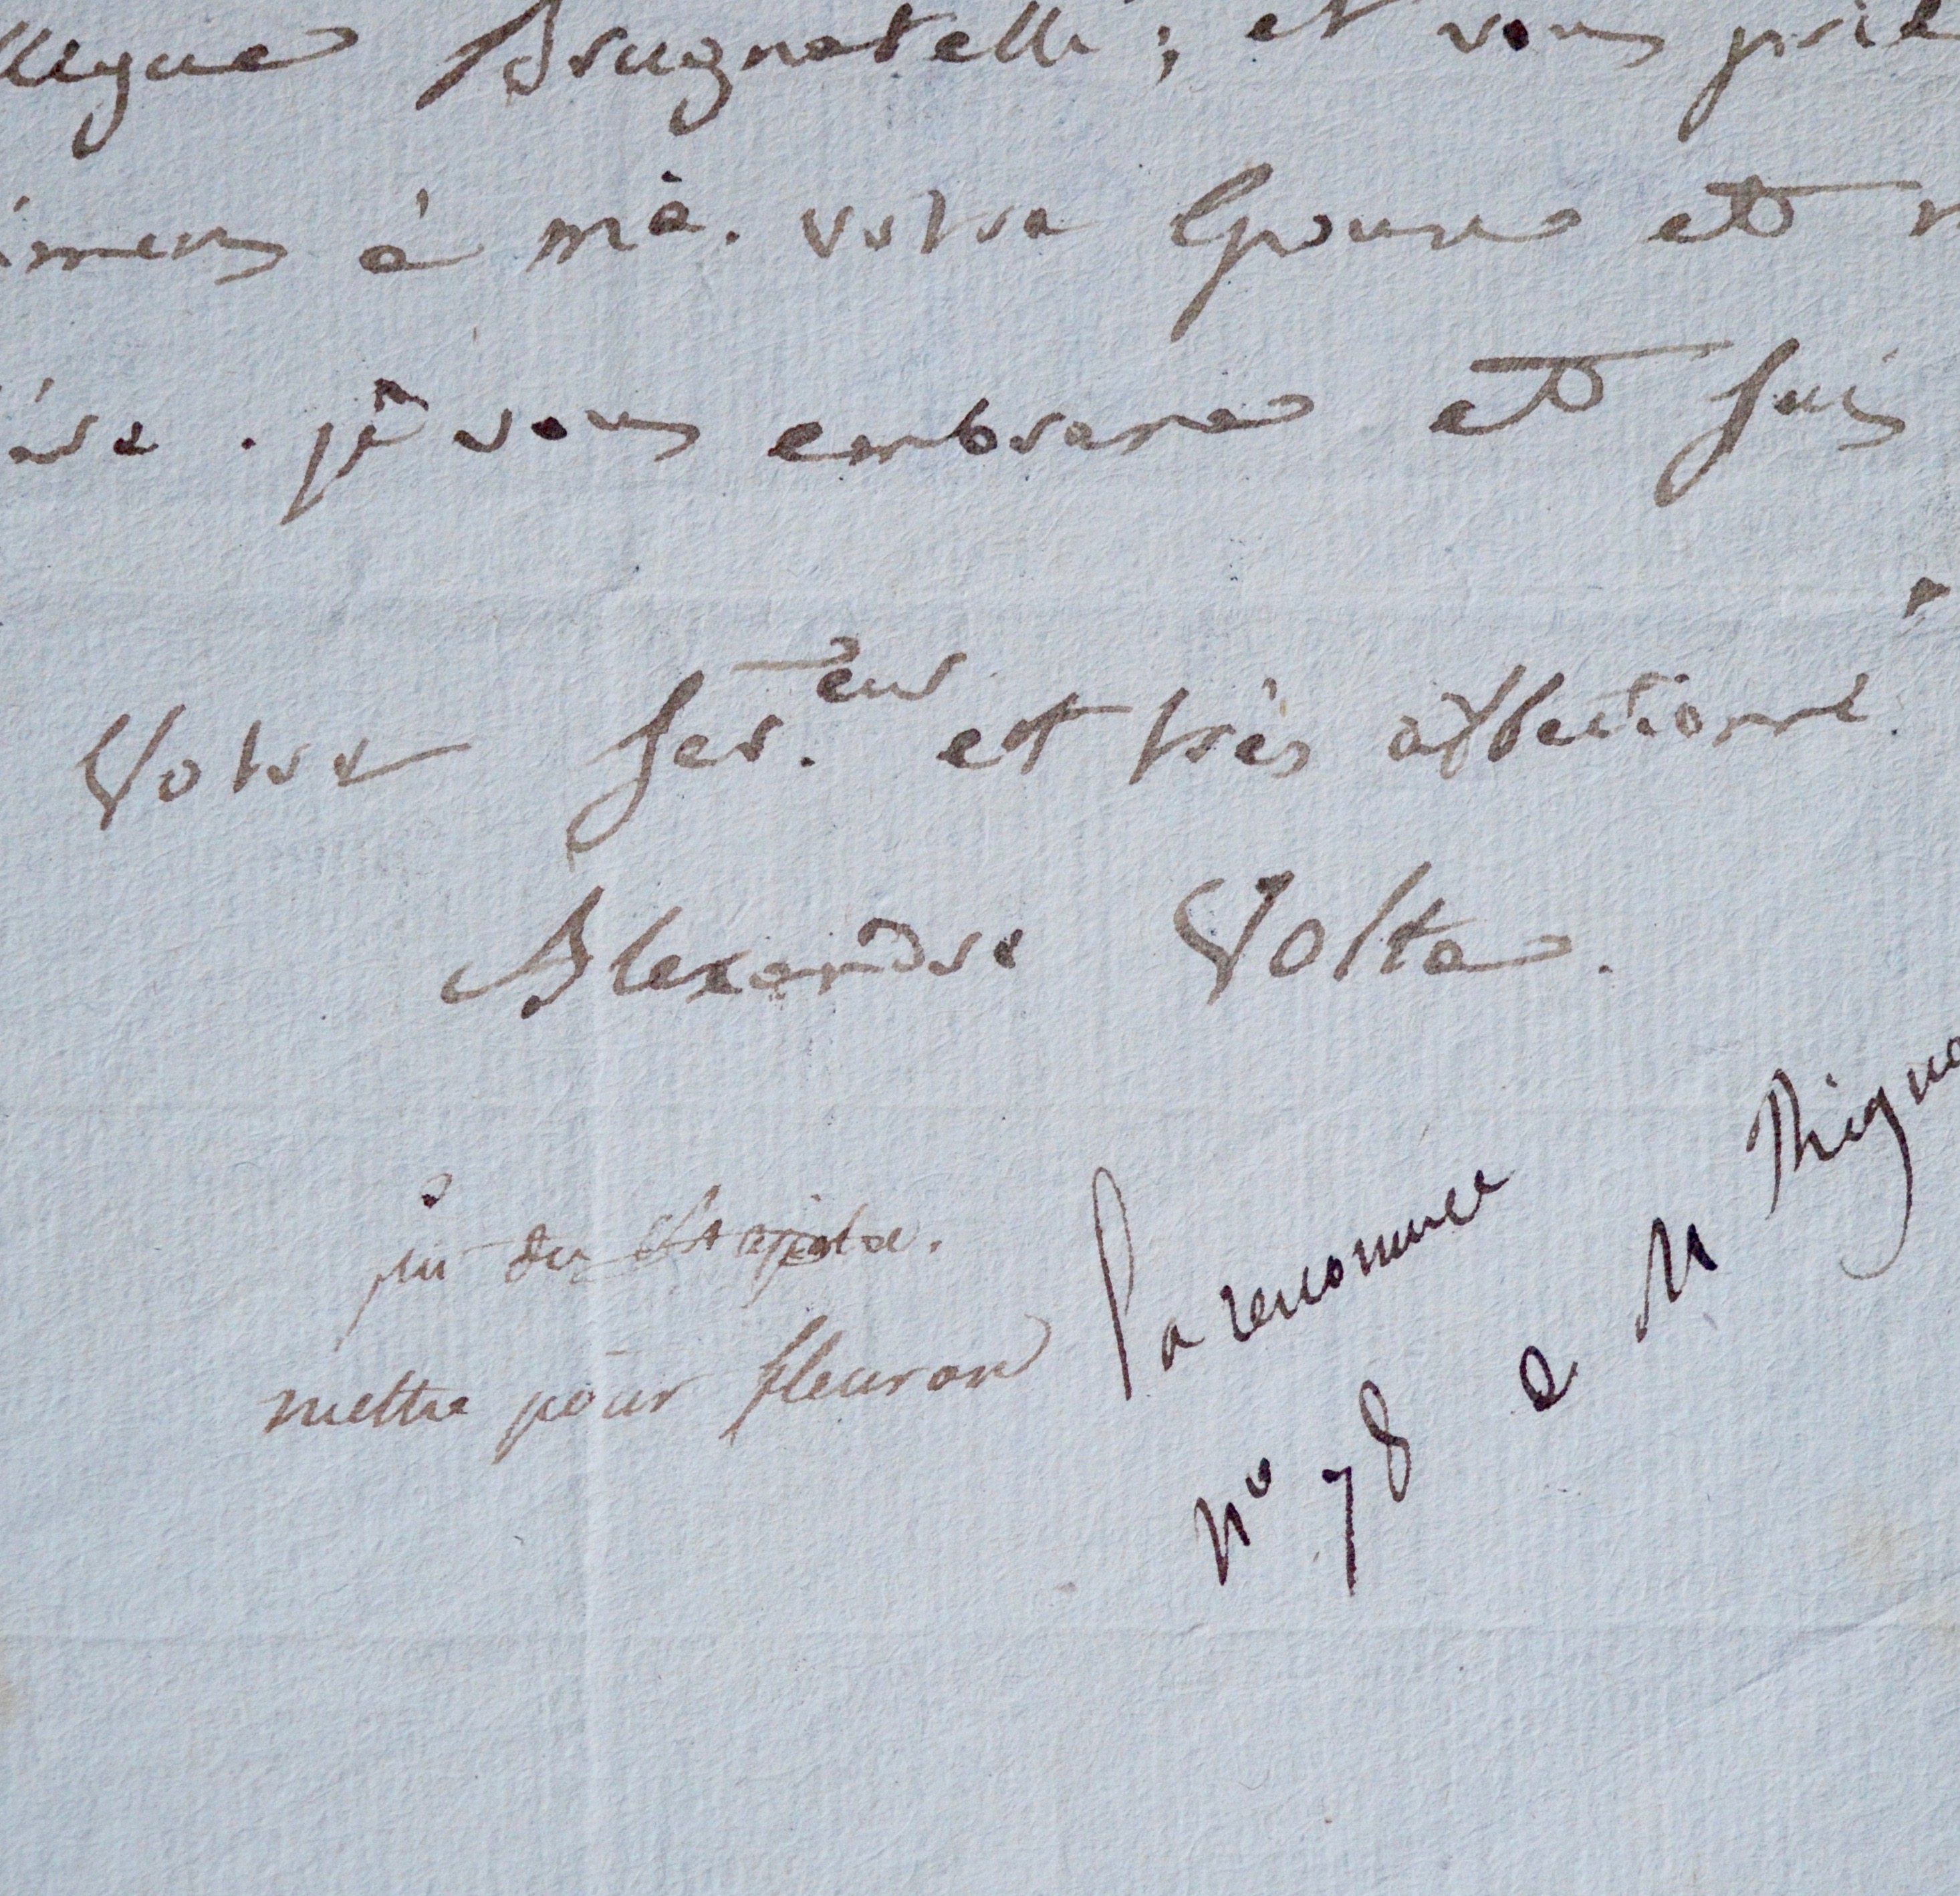 llegue Brugnatelli ; et vous prie
imens à ma. votre Epouse et
ère . je vous embrasse et suis
Votre ser.eur et très affectionné
Alexandre Volta.
fin du
mettre pour fleuron la renommée
n° 78 a M